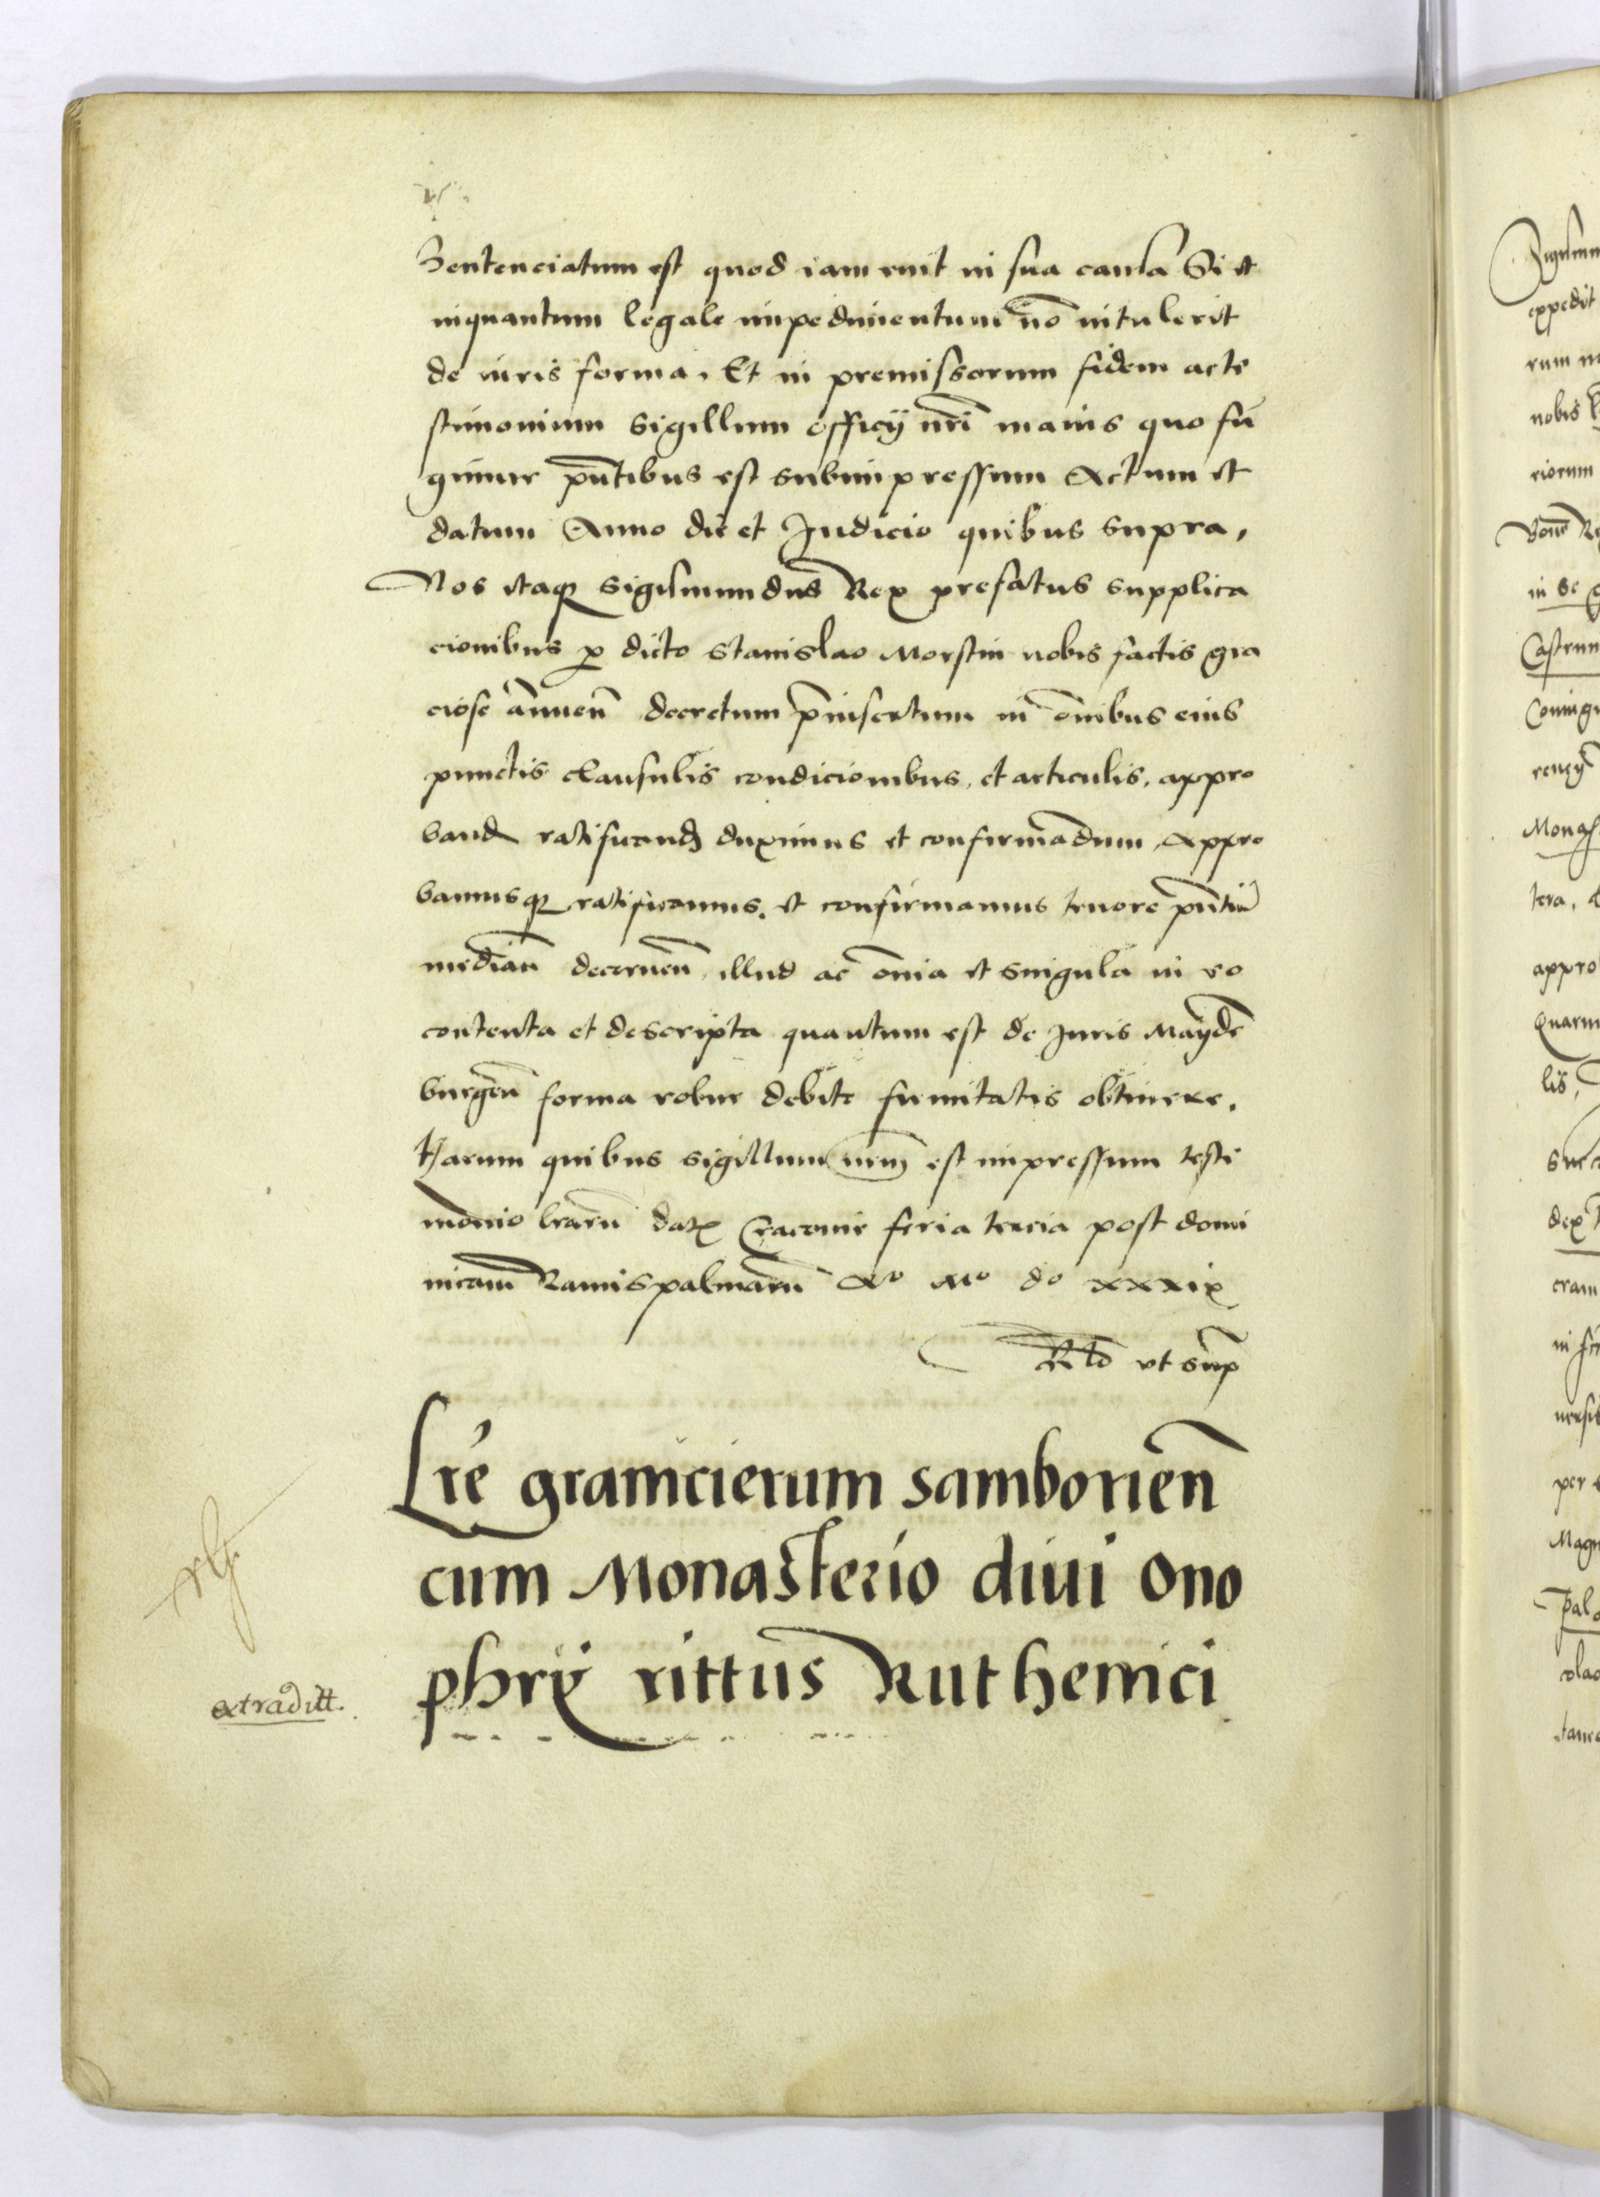 Sentenciatum est quod iam ruit in sua causa Si et
inquantum legale impedimentum nõ intulerit
de iuris forma, Et in premissorum fidem acte
stimonium sigillum officij nr̃i maius quo fũ
gimur pñtibus est subimpressum Actum et
datum Anno die et Judicio quibus supra,
Nos itaqꝫ Sigismundus Rex prefatus supplica
cionibus p dicto Stanislao Morstin nobis factis gra
ciose annuen̄ decretum p̄insertum in om̄ibus eius
punctis clausulis condicionibus, et articulis, appro
band ratificandꝫ duximus et confirmandum Appro
bamusqꝫ ratificamus, et confirmamus tenore pñtiũ
median̄ decernen̄, illud ac om̄ia et singula in eo
contenta et descripta quantum est de Juris Mayde
burgen̄ forma robur debite firmitatis obtinere,
Harum quibus sigillum nrm̄ est impressum testi
monio lrarũ datꝫ Cracovie feria tercia post domi
nicam Ramispalmarũ Aº Mº dº xxxix
Rlõ ut sup̄
Lr̃e gramicierum Samborien̄
cum Monasterio diui Ono
phrij rittus Ruthenici
extraditt.